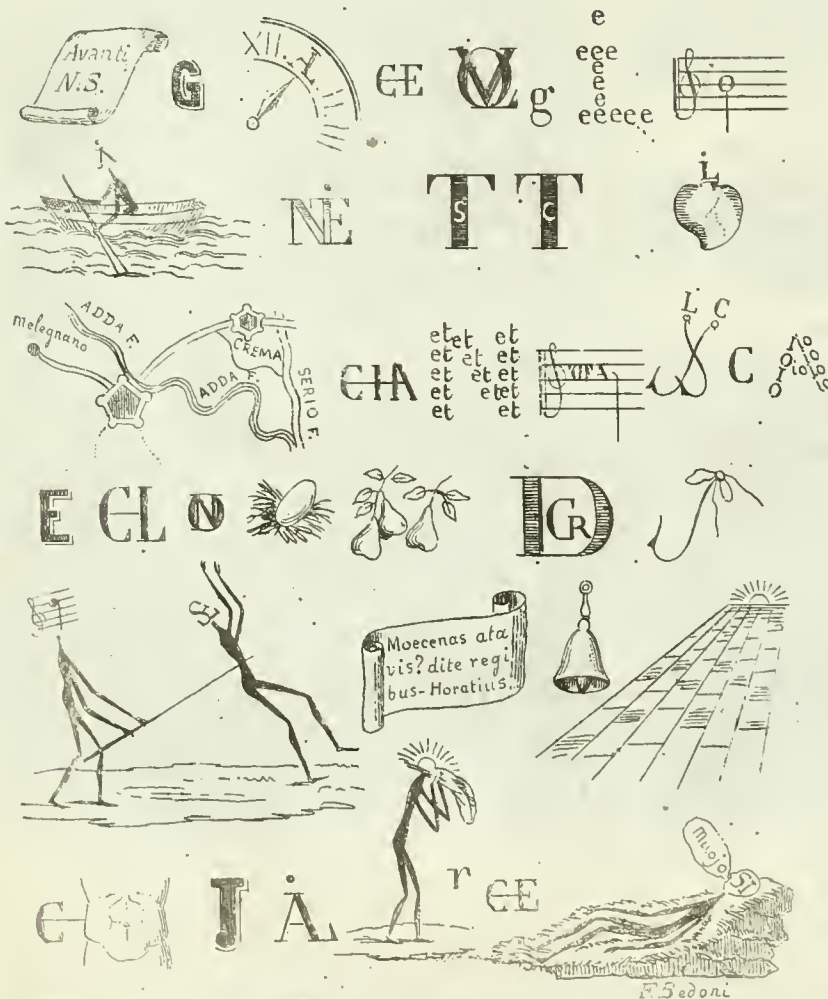 Avanti
N.S.
G
XII. I
CE
g
e
eee
e
e
e
eeeee
NE
T S
T C
L
melegnano
ADDA F.
ADDA F.
CREMA
SERIO F.
CIA
et et et
et et et
et et et
et et et
et et
L C
C
E CL N
D CR
Moecenas ata
vis? dite regi
bus-Horatius.
C
J A
r
CE
muojo
SI
F. Sedoni